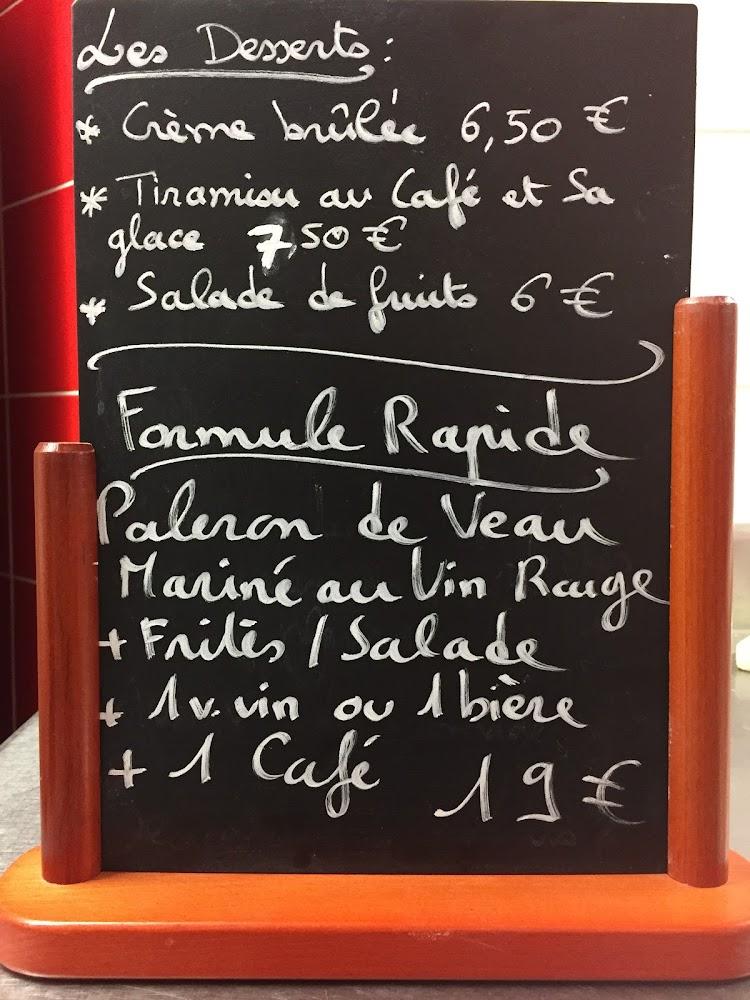 Les Desserts :
* Crème brûlée 6,50 €
* Tiramisu au Café et Sa
glace 7,50 €
* Salade de fruits 6 €
Formule Rapide
Paleron de Veau
Mariné au Vin Rouge
+ Frites / Salade
+ 1 v. vin ou 1 bière
+ 1 Café 19 €